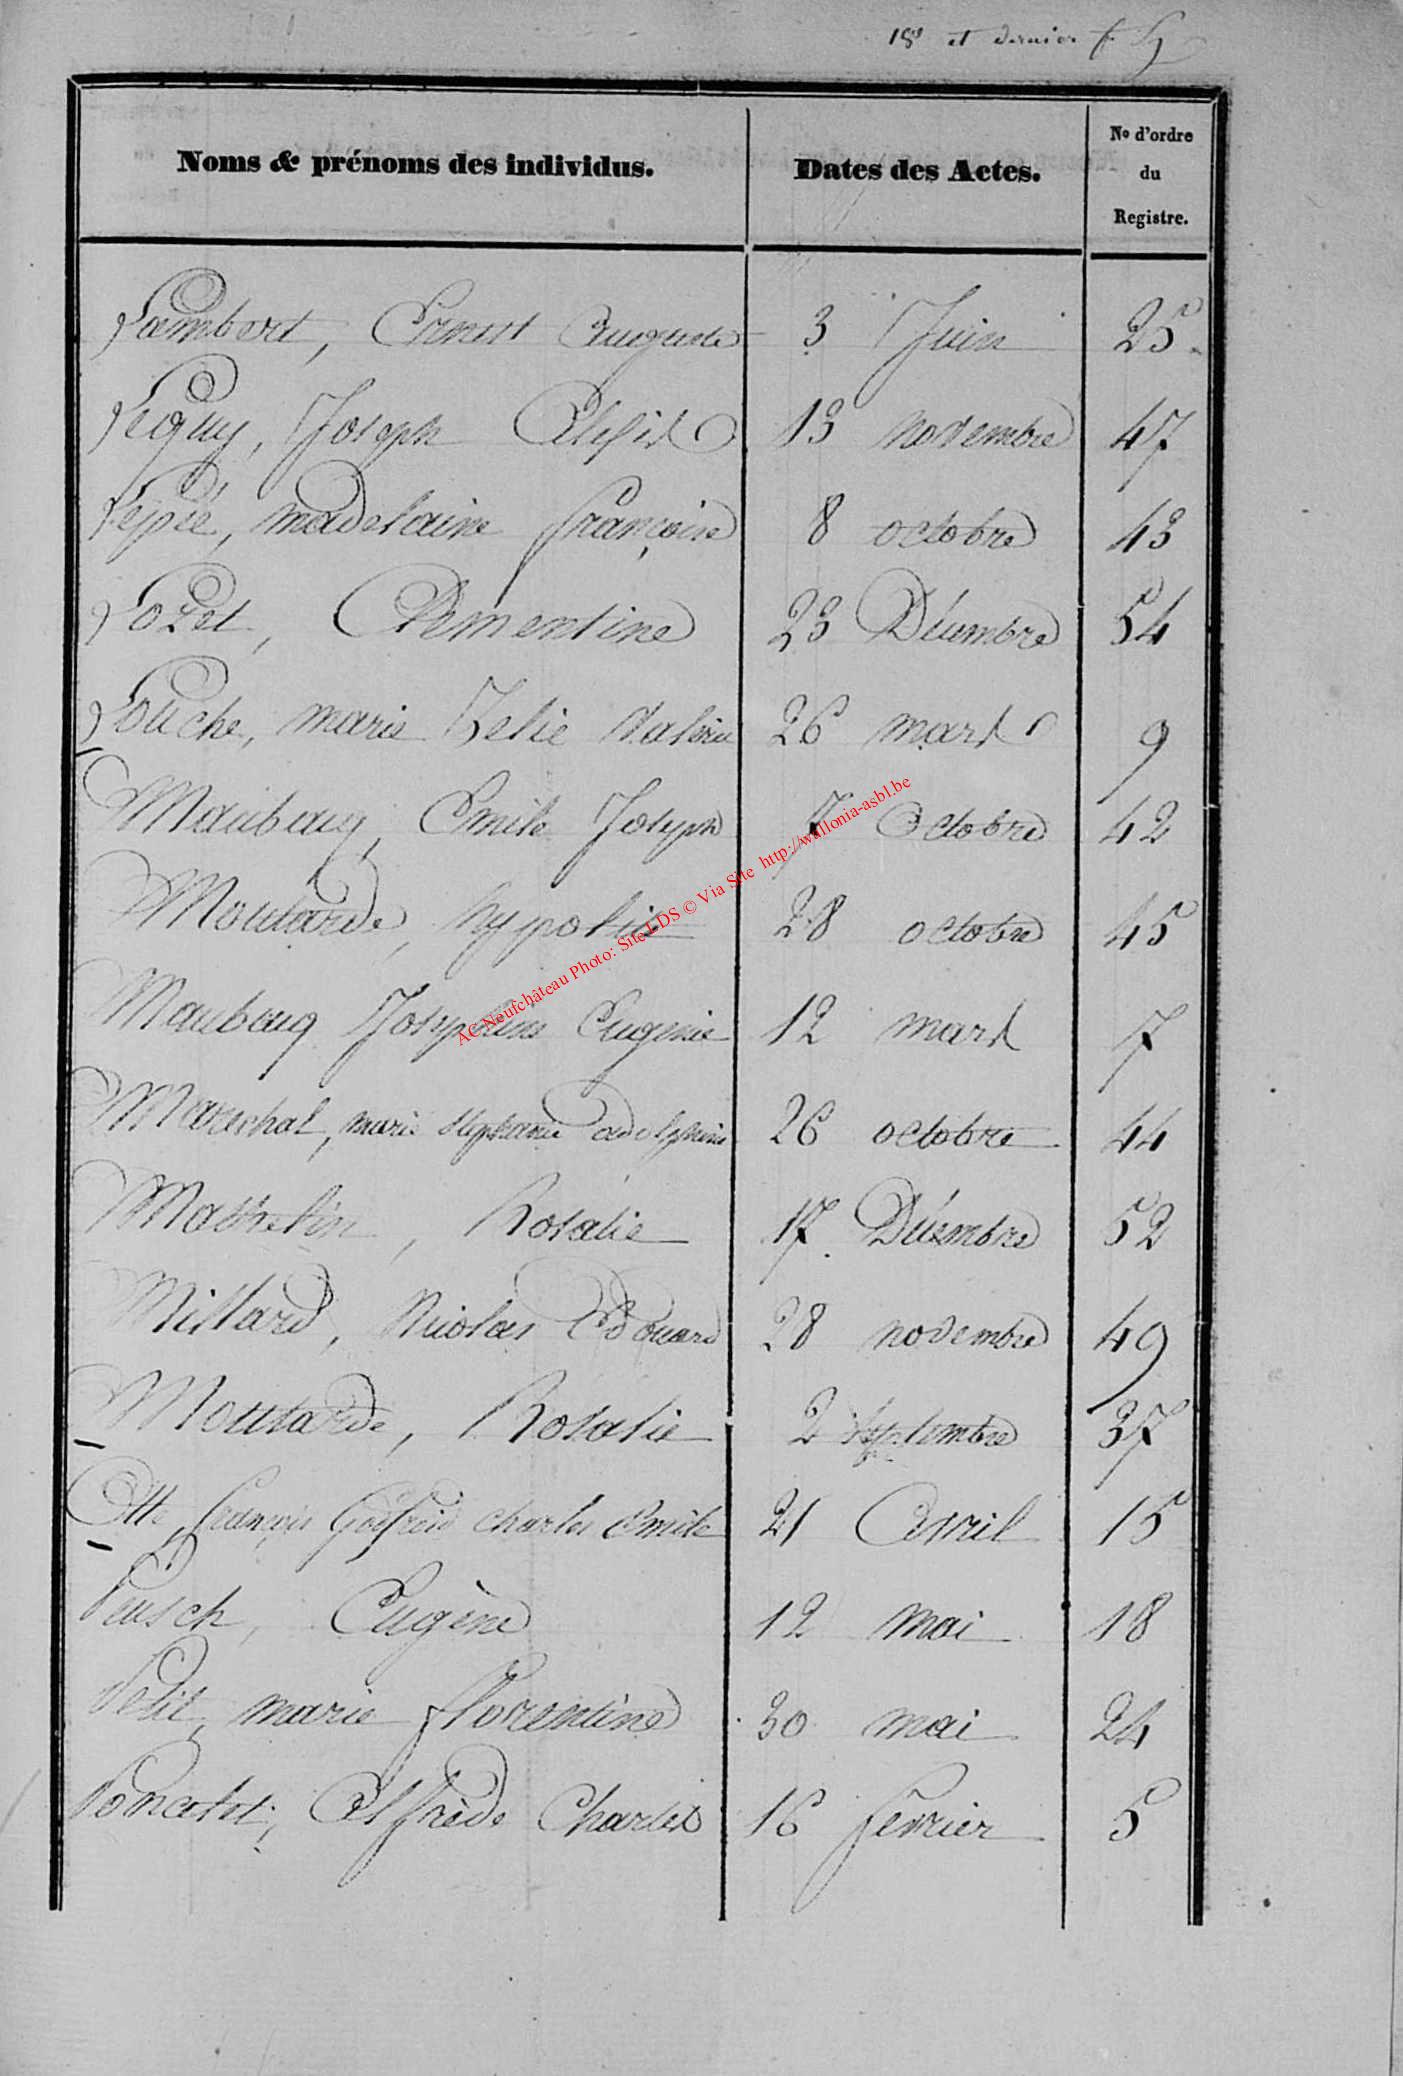 et dernier
Noms & prénoms des individus. Dates des Actes. No d'ordre du Registre.
Lambert, Ernest Auguste 3 Juin 25
Lequy, Joseph 13 novembre 47
Lepie, madelaine françoise 8 octobre 43
Lozet, Clementine 23 Décembre 54
Louche, marie Zelie Valérie 26 mars 9
Maubeuq, Emile Joseph 7 Octobre 42
Moutarde, hypolite 28 octobre 45
Maubauq Josephine Eugénie 12 mars 7
Marechal, marie Stéphanie adolphine 26 octobre 44
Mathelin, Rosalie 17 Décembre 52
Millard, Nicolas Edouard 28 novembre 49
Moutarde, Rosalie 2 Septembre 37
Otte, françois Godfroid Charles Emile 21 Avril 15
Peusch, Eugène 12 mai 18
Petit, marie florentine 30 mai 24
Poncelet, Alfrède Charles 16 fevrier 5
AC Neufchâteau Photo: Site LDS © Via Site http://wallonia-asbl.be